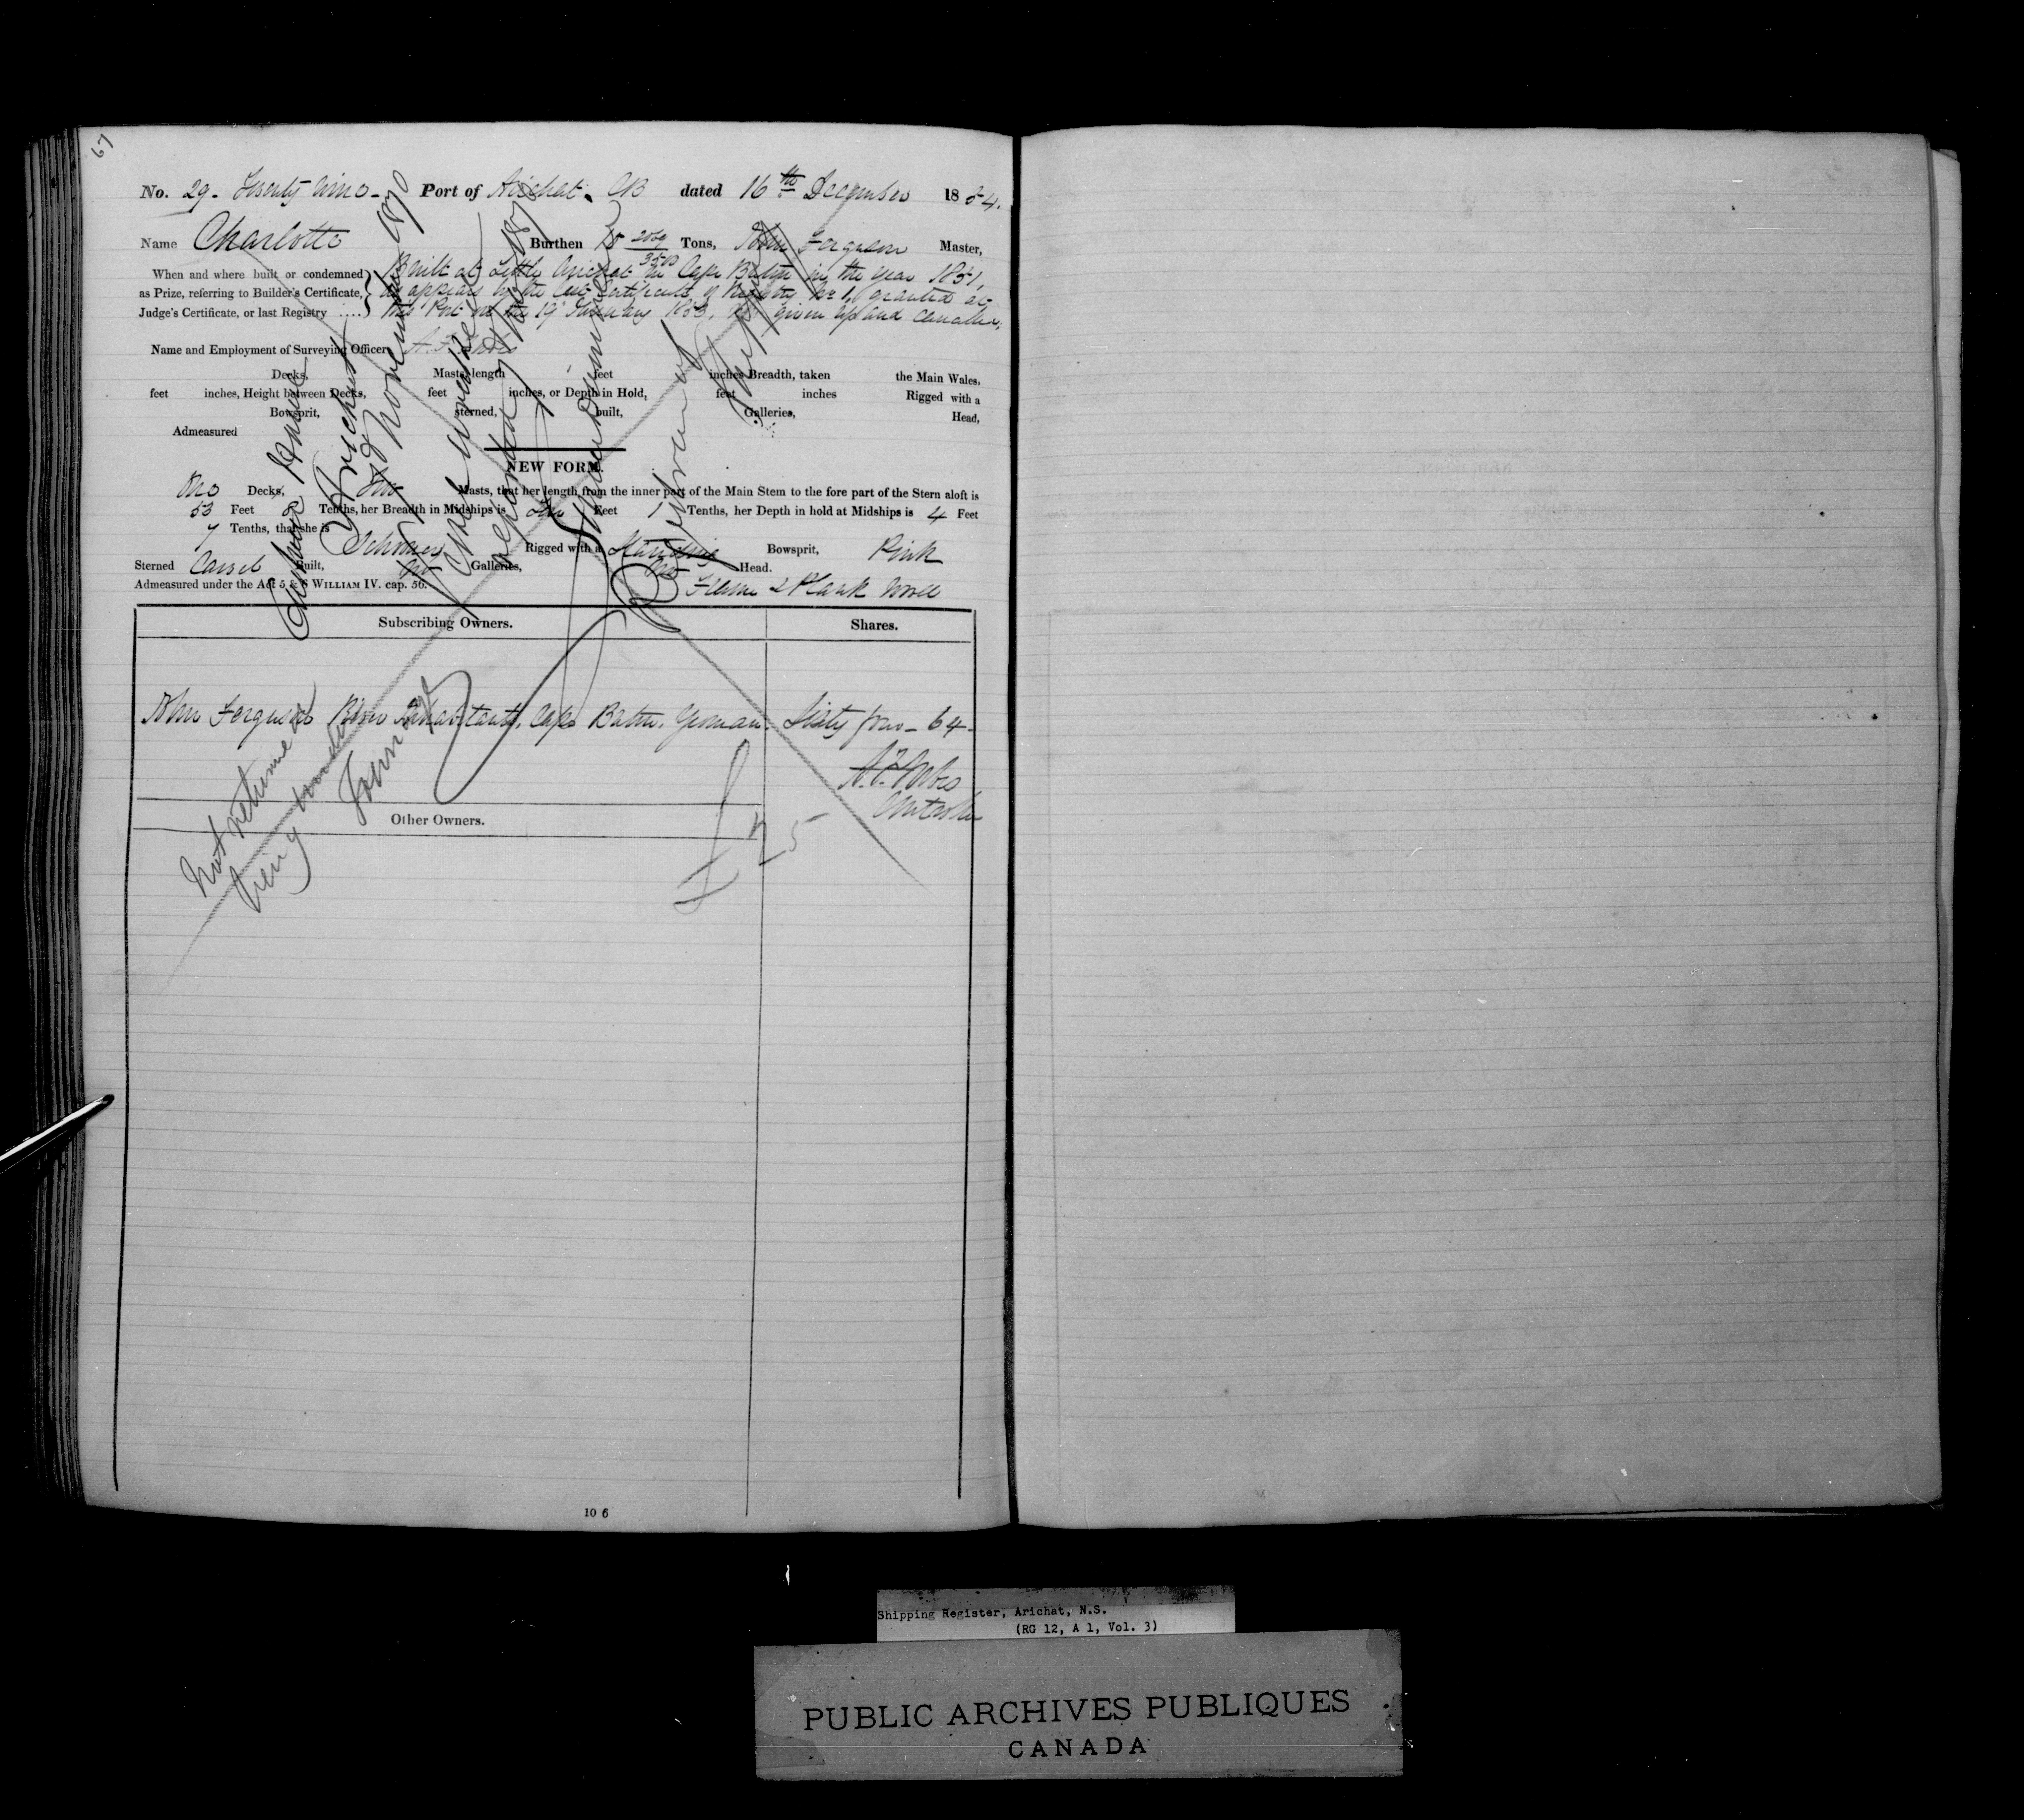 67
No. 29. Twenty Nine - Port of Arichat. CB dated 16th December 1854.
Name Charlotte Burthen 18 2069/3500 Tons, John Ferguson Master,
When and where built or condemned as Prize, referring to Builder's Certificate, Judge's Certificate, or last Registry ....
Built at Little Arichat in Cape Breton in the year 1851,
as appears by the Certificate of Registry No 1, granted at
this Port on the 19 January 1853, now given up and cancelled,
Name and Employment of Surveying Officer
Decks, Masts, length feet inches Breadth, taken the Main Wales,
feet inches, Height between Decks, feet inches, or Depth in Hold, feet inches Rigged with a
Bowsprit, sterned, built, Galleries, Head,
Admeasured
NEW FORM.
No Decks, Two Masts, that her length from the inner part of the Main Stem to the fore part of the Stern aloft is
53 Feet Tenths, her Breadth in Midships is Feet 1 Tenths, her Depth in hold at Midships is 4 Feet
7 Tenths, that she is Schooner Rigged with a Standing Bowsprit, Pink
Sterned Carvel Built, No Galleries, No Head.
Admeasured under the Act 5 & 6 WILLIAM IV. cap. 56. Frame & Plank Wood
Custom House
Arichat
November 1870
Registrar of Shipping
Subscribing Owners. Shares.
John Ferguson River Inhabitants, Cape Breton, Yeoman. Sixty four - 64 -
Not returned
being under
Tonnage
Other Owners.
10 6
Shipping Register, Arichat, N.S.
(RG 12, A 1, Vol. 3)
PUBLIC ARCHIVES PUBLIQUES
CANADA